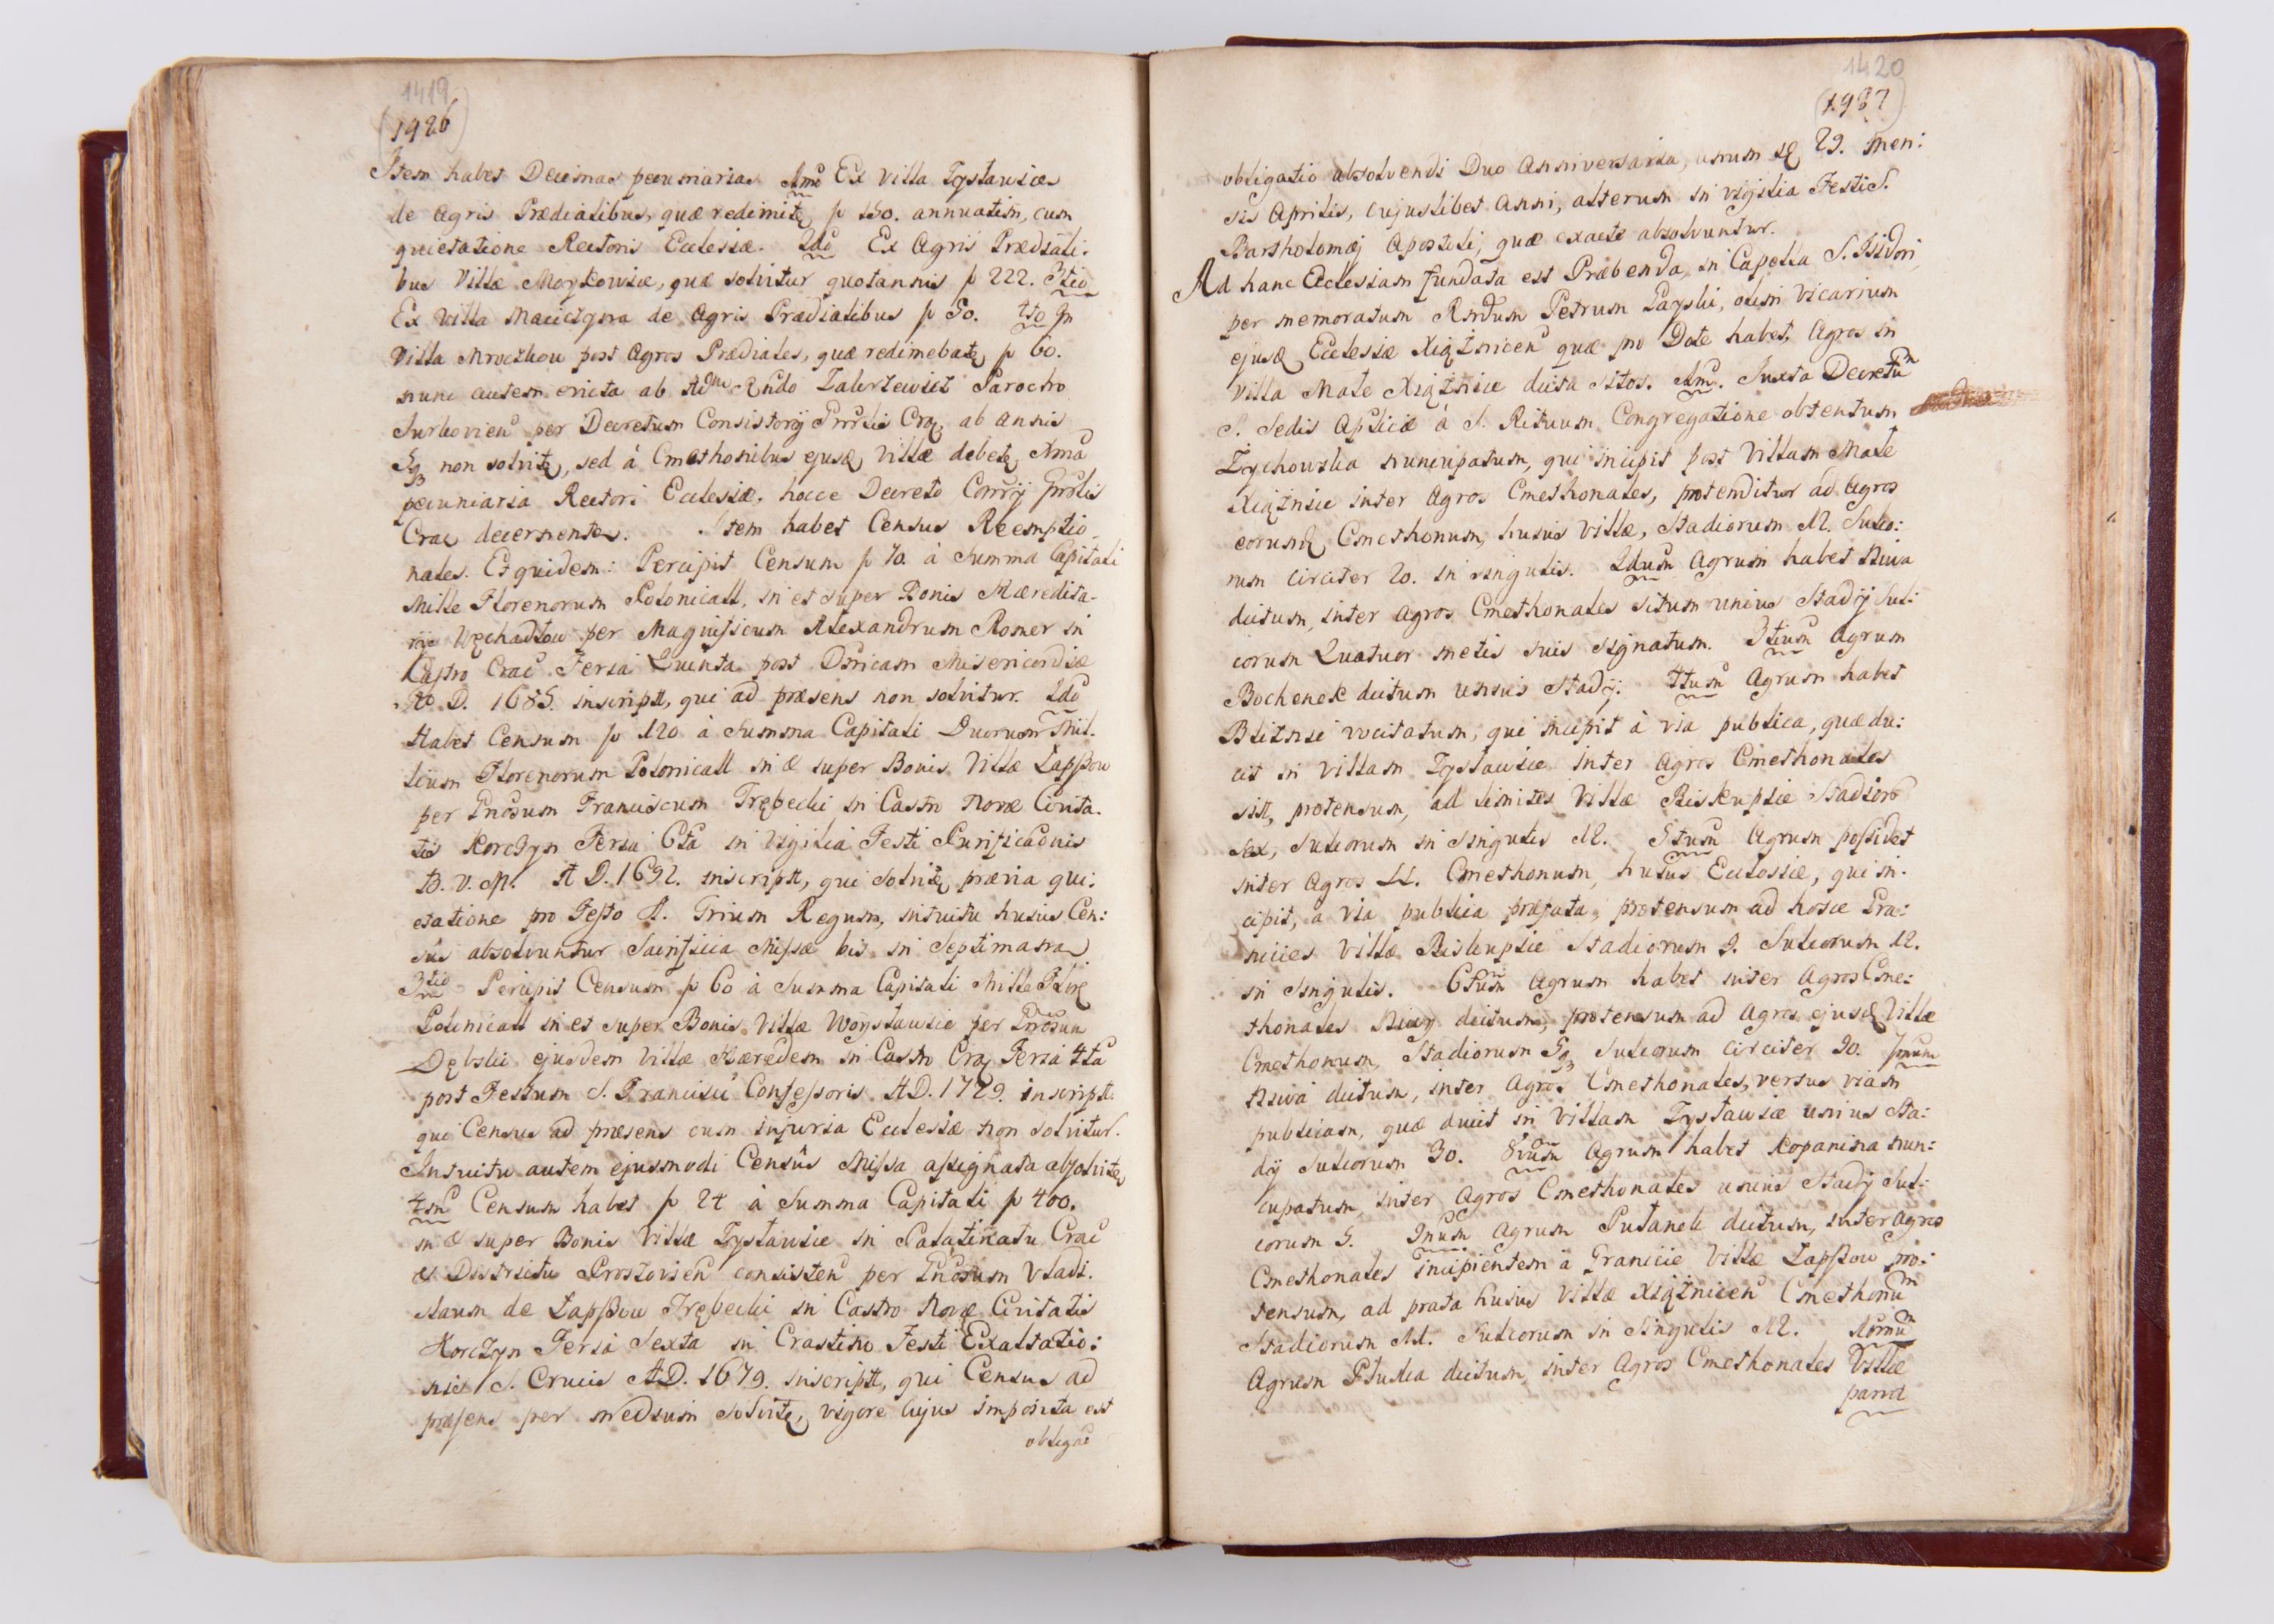 1419
1926
Item habet Decimas pecuniarias 1mo Ex Villa Tystawice
de Agris Prædialibus, quæ redimitr p 150. annuatim, cum
quietatione Rectoris Ecclesiæ. 2do Ex Agris Prædiali:
bus Villæ Moykowice, quæ solvitur quotannis p 222. 3tio
Ex Villa Macieiowa de Agris Prædialibus p 50. 4to In
Villa Mroczkow post Agros Prædiales, quæ redimebatr p 60.
nunc autem evicta ab Adm Rndo Parocho
per Decretum Consistorij Gnrlis Crac, ab annis
5q non solvitr, sed á Cmethonibus ejusd Villæ debetr
pecuniaria Rectori Ecclesiæ. hocce Decreto Conrij Gnrlis
Crac decernente. Item habet Census Reemptio-
nales. Et quidem: Percipit Censum p 70. á Summa Capitali
Mille Florenorum Polonicall, in et super Bonis Hæredita-
rijs Węchadłow per Magnificum Alexandrum Romer in
Castro Crac Feria Quinta post Dnicam Misericordiæ
Ao D. 1685. inscriptt, qui ad præsens non solvitur. 2do
Habet Censum p 120 á Summa Capitali Duorum Mil-
lium Florenorum Polonicall in & super Bonis Villæ Łapszow
per Gnosum Franciscum Trębecki in Castro Novæ Civita-
tis Korczyn Feria 6ta in Vigilia Festi Purificaonis
B. V. M. A D. 1692. inscriptt, qui solvitr prævia qui:
etatione pro Festo SS. Trium Regum, intuitu hujus Cen:
sus absolvuntur Sacrificia Missæ bis in Septimana
3tio Percipit Censum p 60 á Summa Capitali Mille Flor
Polonicall in et super Bonis Villæ Woysławice per Gnosum
Dębski ejusdem Villæ Hæredem in Castro Crac Feria 4ta
post Festum S. Francisci Confessoris A D. 1729. inscriptt.
qui Census ad præsens cum injuria Ecclesiæ non solvitur.
Intuitu autem ejusmodi Census Missa assignata absolvitr
4m Censum habet p 24 á Summa Capitali p 400.
in & super Bonis Villæ Tystawice in Palatinatu Crac
& Districtu Proszovien consisten per Gnosum Vladi-
slaum de Łapszow Trębecki in Castro Novæ Civitatis
Korczyn Feria Sexta in Crastino Festi Exaltatio:
nis S. Crucis A D. 1679. inscriptt, qui Census ad
præsens per medium solvitr, vigore cujus imposita est
obligao
1420
1927
obligatio absolvendi Duo Anniversaria, unum 29. Men:
sis Aprilis, cujuslibet Anni, alterum in Vigilia Festi S.
Bartholomæj Apostoli, quæ exacte absolvuntur.
Ad hanc Ecclesiam fundata est Præbenda, in Capella S. Isidori,
per memoratum Rndum Petrum, olim Vicarium
ejusd Ecclesiæ Xiążnicen quæ pro Dote habet, Agros in
Villa Małe Xiążnice dicta sitos. 1mo. Juxta Decretum
S. Sedis Aplicæ á S. Rituum Congregatione obtentum
Zychowska nuncupatum, qui incipit post Villam Małe
Xiążnice inter Agros Cmethonales, protenditur ad Agros
eorund Cmethonum, hujus Villæ, Stadiorum 12. Sulco:
rum circiter 20. in singulis. 2dum Agrum habet Niwa
dictum, inter Agros Cmethonales situm unius Stadij Sul:
corum Quatuor metis suis signatum. 3tium Agrum
Bochenek dictum unius Stadij. 4tum Agrum habet
Bliznie vocitatum, qui incipit á via publica, quæ du:
cit in Villam Tystawice inter Agros Cmethonales
sitt, protensum, ad limites Villæ Biskupice Stadiorū
sex, Sulcorum in singulis 12. 5tum Agrum possidet
inter Agros LL. Cmethonum, hujus Ecclesiæ, qui in:
cipit, a via publica præfata, protensum ad hosce Gra:
nicies Villæ Biskupice Stadiorum 9. Sulcorum 12.
in singulis. 6tum Agrum habet inter Agros Cme:
thonales dictum, protensum ad Agros ejusd Villæ
Cmethonum, Stadiorum 5q Sulcorum circiter 20. 7mum
Niwa dictum, inter Agros Cmethonales, versus viam
publicam, quæ ducit in Villam Tystawice unius Sta:
dij Sulcorum 30. 8vum Agrum habet Kopanina nun:
cupatum, inter Agros Cmethonales unius Stadij Sul:
corum 5. 9num Agrum Putanek dictum, inter Agros
Cmethonales incipientem á Granicie Villæ Łapszow pro:
tensum, ad prata hujus Villæ Xiążnicen Cmethonum
Stadiorum 11. Sulcorum in singulis 12. 10mum
Agrum Płudka dictum, inter Agros Cmethonales Villæ
parvæ